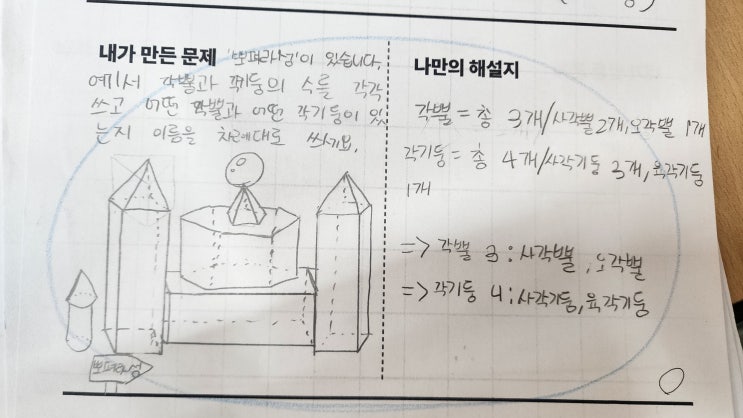 내가 만든 문제 '뽀펴라성'이 있습니다.
에서 각뿔과 각기둥의 수를 각각
쓰고 어떤 각뿔과 어떤 각기둥이 있
는지 이름을 차례대로 쓰세요.
나만의 해설지
각뿔 = 총 3개/사각뿔 2개, 오각뿔 1개
각기둥 = 총 4개/사각기둥 3개, 육각기둥
1개
=> 각뿔 3 : 사각뿔, 오각뿔
=> 각기둥 4 : 사각기둥, 육각기둥